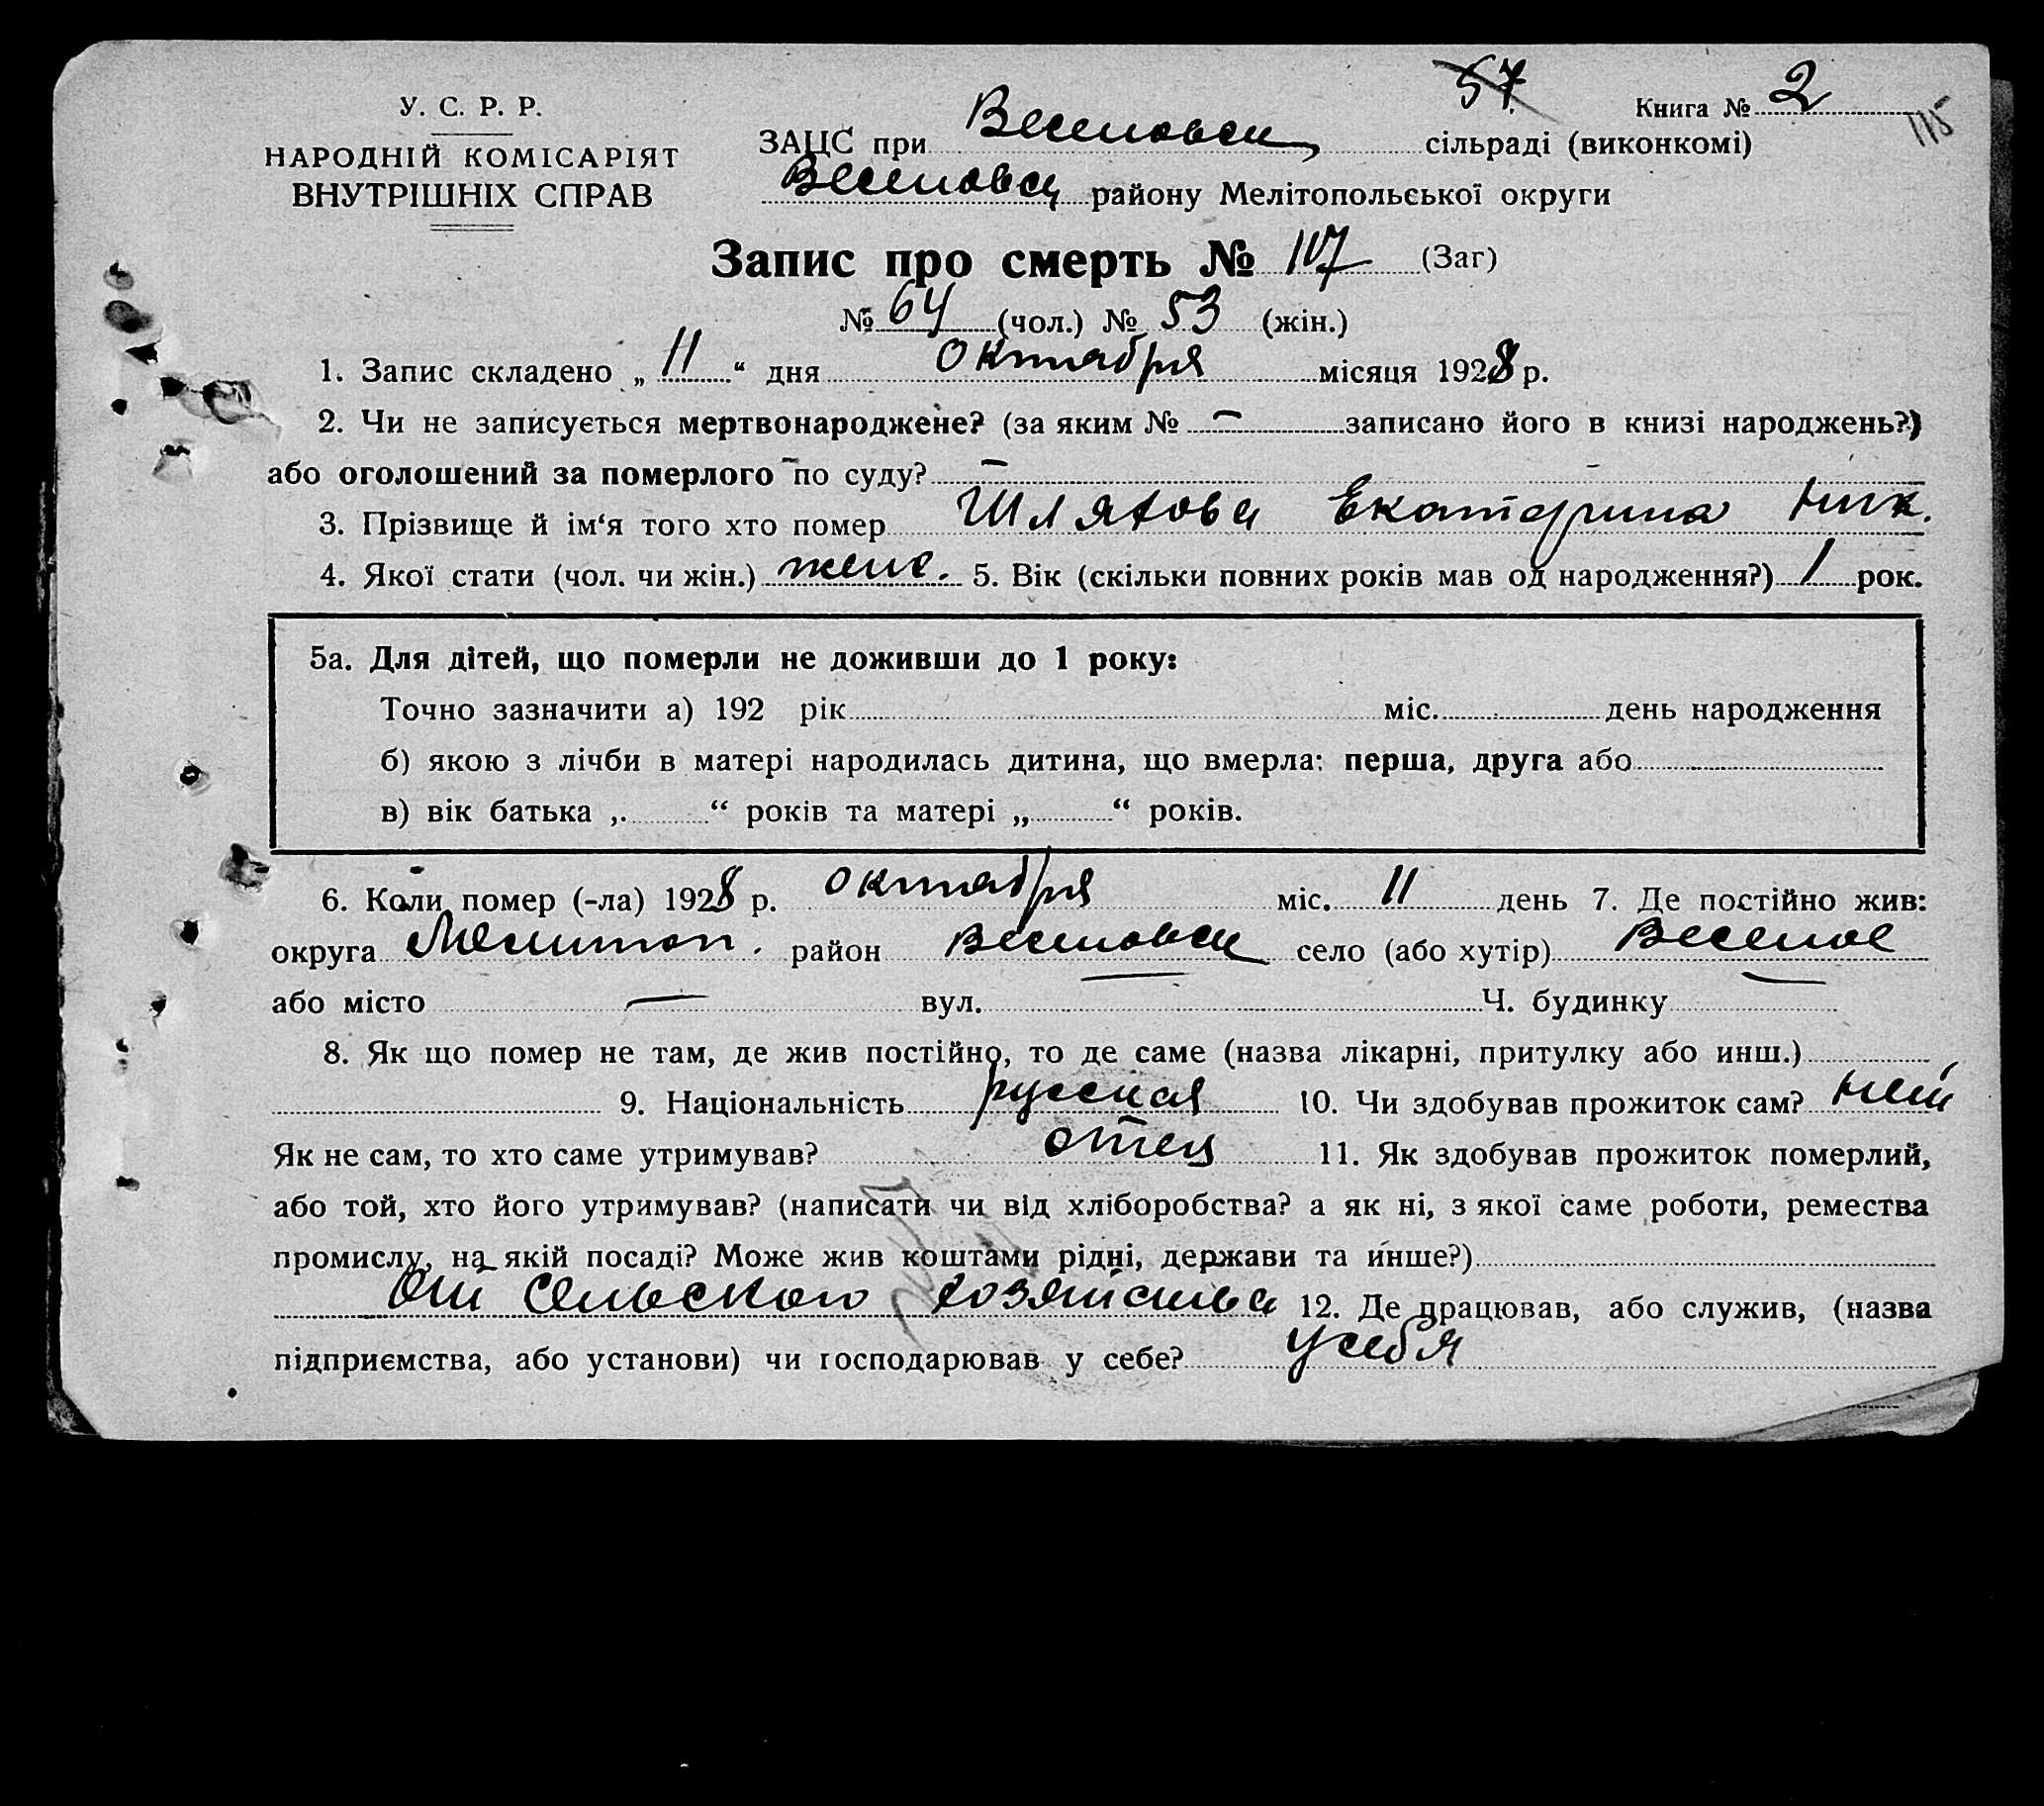 57
Книга № 2
115
У. С. Р. Р.
НАРОДНІЙ КОМІСАРІЯТ
ВНУТРІШНІХ СПРАВ
ЗАЦС при Веселовск сільраді (виконкомі)
Веселовск району Мелітопольської округи
Запис про смерть № 117 (Заг)
№ 64 (чол.) № 53 (жін.)
1. Запис складено „ 11 “ дня октября місяця 1928 р.
2. Чи не записується мертвонароджене? (за яким № – записано його в книзі народжень?)
або оголошений за померлого по суду? –
3. Прізвище й ім‘я того хто помер Шляхова Екатерина Ник.
4. Якої стати (чол. чи жін.) женс. 5. Вік (скільки повних років мав од народження?) 1 рок.
5а. Для дітей, що померли не доживши до 1 року:
Точно зазначити а) 192 рік міс. день народження
б) якою з лічби в матері народилась дитина, що вмерла: перша, друга або
в) вік батька „ “ років та матері „ “ років.
6. Коли помер (-ла) 1928 р. октября міс. 11 день 7. Де постійно жив:
округа Мелитоп. район Веселовск село (або хутір) Веселое
або місто — вул. — Ч. будинку —
8. Як що помер не там, де жив постійно, то де саме (назва лікарні, притулку або инш.)
9. Національність русская 10. Чи здобував прожиток сам? нет
Як не сам, то хто саме утримував? отец 11. Як здобував прожиток померлий,
або той, хто його утримував? (написати чи від хліборобства? а як ні, з якої саме роботи, ремества
промислу, на якій посаді? Може жив коштами рідні, держави та инше?)
От сельского хозяйства 12. Де працював, або служив, (назва
підприємства, або установи) чи господарював у себе? у себя